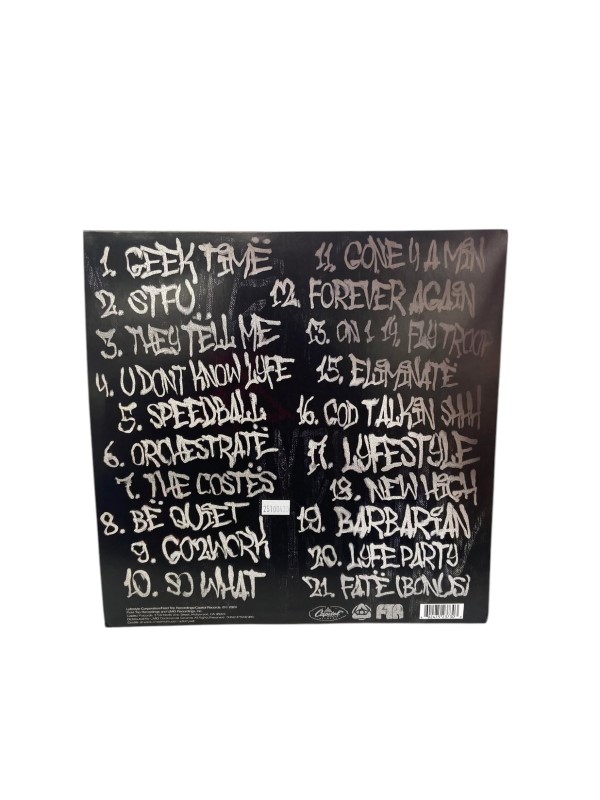 1. GEEK TIMË
2. STFU
3. THEY TËLL ME
4. U DONT KNOW LYFE
5. SPEEDBALL
6. ORCHESTRATË
7. THE COSTËS
8. BË QUIET
9. GO2WORK
10. SO WHAT
11. GONE 4 A MIN
12. FOREVER AGAIN
13. ON 1 14. FLY TROOP
15. ELIMINATË
16. GOD TALKIN SHH
17. LYFESTYLE
18. NEW HIGH
19. BARBARIAN
20. LYFE PARTY
21. FATË (BONUS)
Capitol